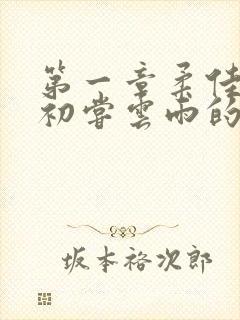 第一章柔佳
初嘗雲雨的
坂本裕次郎